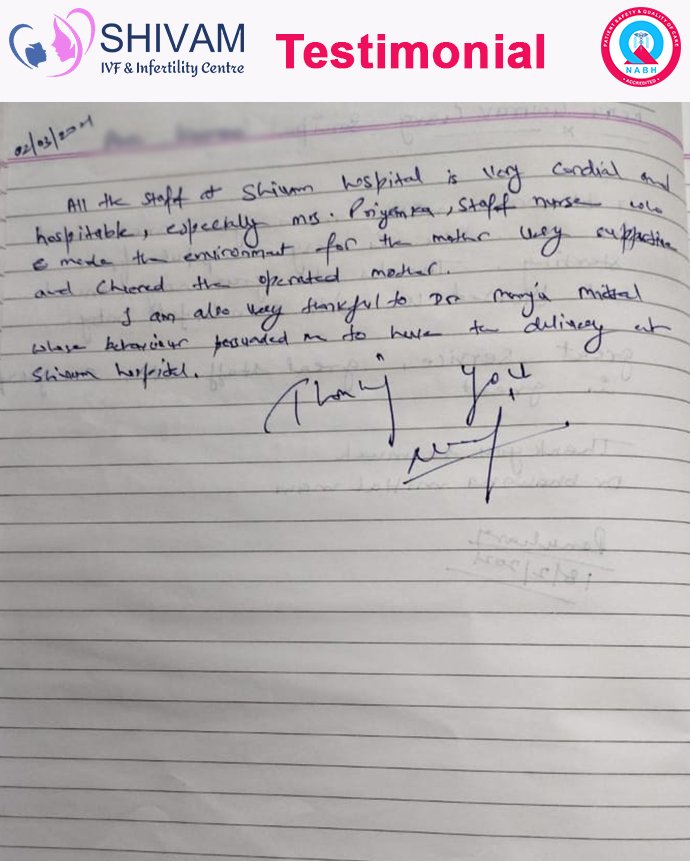 SHIVAM
IVF & Infertility Centre
Testimonial
PATIENT SAFETY & QUALITY OF CARE
NABH
ACCREDITED
02/03/2021
All the staff at Shivam hospital is very cordial and
hospitable, especially mrs. Priyanka, staff nurse who
made the environment for the mother very supportive
and cheered the operated mother.
I am also very thankful to Dr Mittal
whose behaviour persuaded me to have the delivery at
Shivam hospital.
Thank you